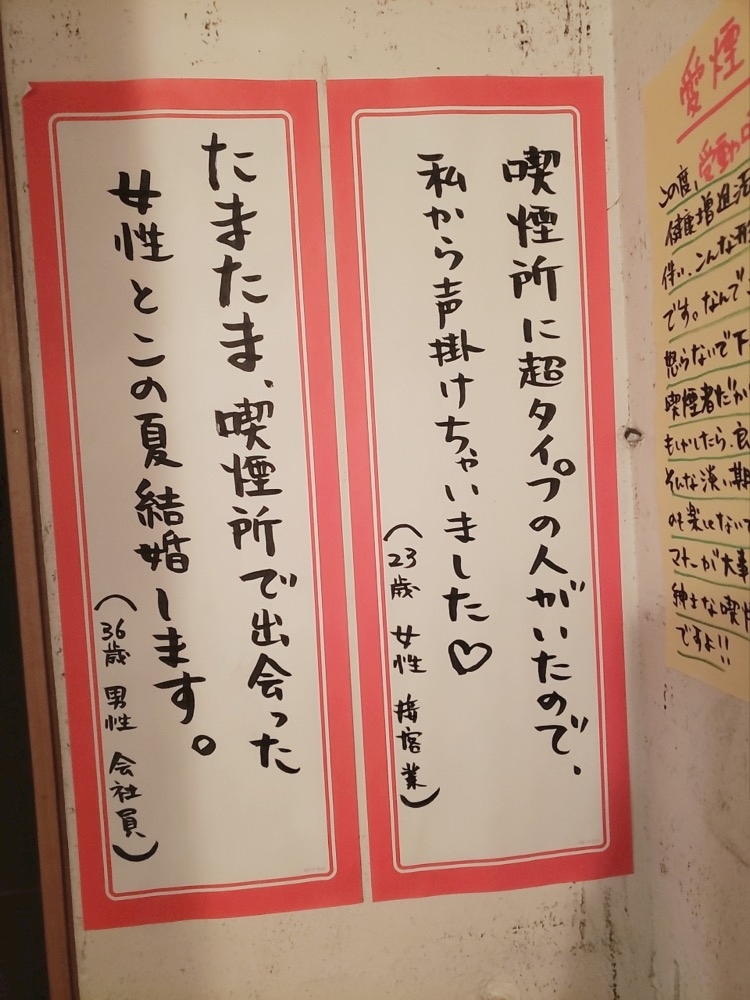 愛煙
受動
この度、
健康増進
伴い、こんな形
です。なんで
怒らないで下
喫煙者だか
もしかしたら、
そんな淡い期
のも楽しないで
マナーが大事
紳士な喫煙
ですよ!!
喫煙所に超タイプの人がいたので、
私から声掛けちゃいました♡
(23歳 女性 接客業)
たまたま、喫煙所で出会った
女性とこの夏結婚します。
(36歳 男性 会社員)